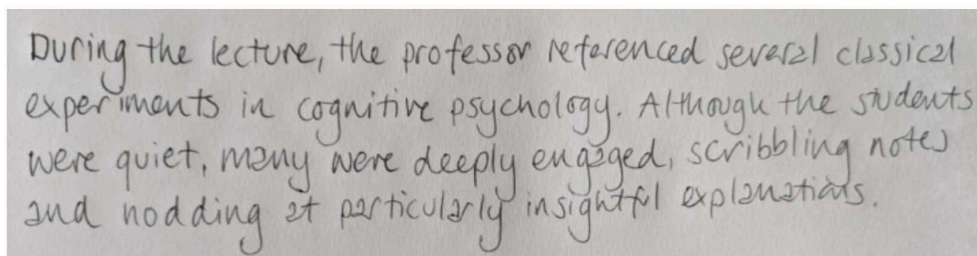 During the lecture, the professor referenced several classical
experiments in cognitive psychology. Although the students
were quiet, many were deeply engaged, scribbling notes
and nodding at particularly insightful explanations.